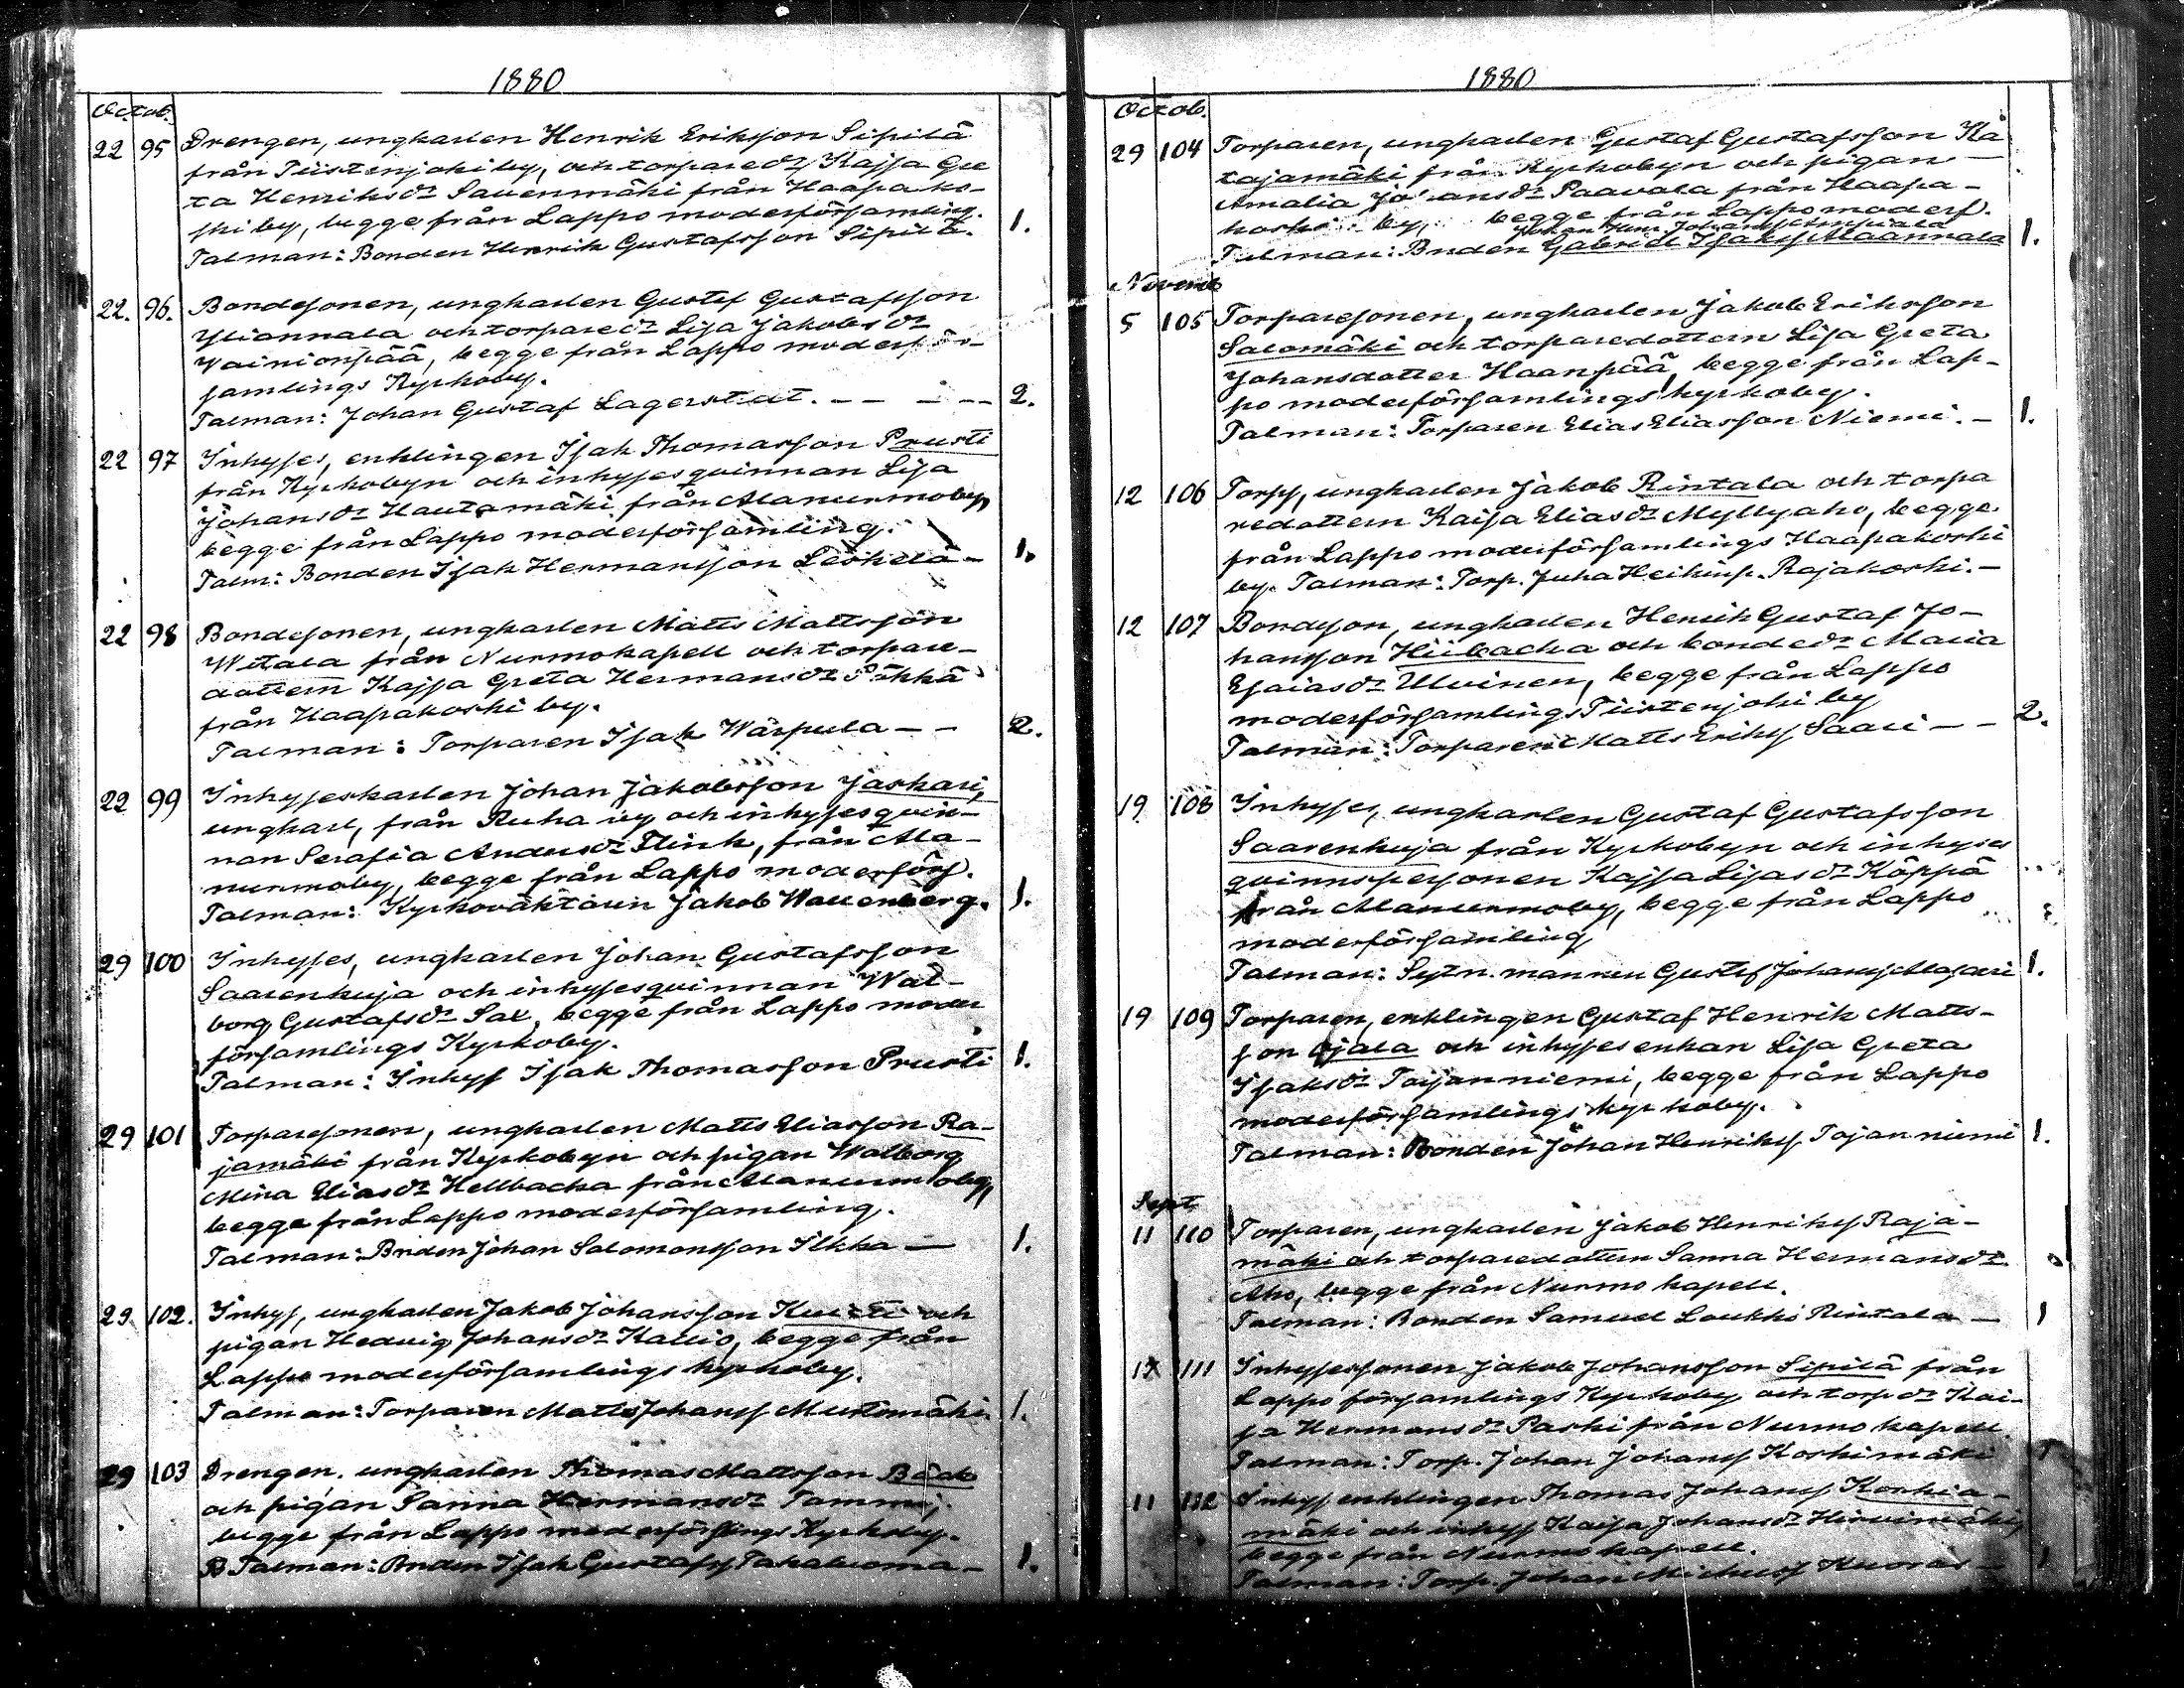 1880
Octob.
22 95 Drengen, ungkarlen Henrik Eriksson Sipilä
från Tiistenjoki by, och torparedr Kajsa Gre
ta Henriksdr Sauenmäki från Haapako-
ski by, begge från Lappo moderförsamling.
Talman: Bonden Henrik Gustafsson Sipilä. 1.
22. 96. Bondesonen, ungkarlen Gustaf Gustafsson
Yliannala och torparedr Lisa Jakobsdr
Wainionpää, begge från Lappo moderför-
samlings Kyrkoby.
Talman: Johan Gustaf Lagerstedt. – – – – 2.
22 97 Inhyses, enklingen Isak Thomasson Prusti
från Kyrkobyn och inhysesqvinnan Lisa
Johansdr Hautamäki från Alanurmoby,
begge från Lappo moderförsamling.
Talm: Bonden Isak Hermansson – 1.
22 98 Bondesonen, ungkarlen Matts Mattsson
Witala från Nurmo kapell och torpare-
dottern Kajsa Greta Hermansdr
från Haapakoski by.
Talman: Torparen Isak Wärpula – – 2.
22 99 Inhyseskarlen Johan Jakobsson Jaskari,
ungkarl, från Ruha by och inhysesqvin-
nan Serafia Andersdr Flink, från Ala-
nurmoby, begge från Lappo moderförs.
Talman: Kyrkoväktaren Jakob Wallenberg. 1.
29 100 Inhyses, ungkarlen Johan Gustafsson
Saarenkuja och inhysesqvinnan Wal-
borg Gustafsdr Sax, begge från Lappo moder
församlings Kyrkoby.
Talman: Inhys Isak Thomasson Prusti 1.
29 101 Torparesonen, ungkarlen Matts Eliasson Ra-
jamäki från Kyrkobyn och pigan Walborg
Mina Eliasdr Hellbacka från Alanurmoby,
begge från Lappo moderförsamling.
Talman: Bnden Johan Salomonsson Ilkka – 1.
29. 102. Inhys, ungkarlen Jakob Johansson och
pigan Hedvig Johansdr Kallio, begge från
Lappo moderförsamlings kyrkoby.
Talman: Torparen Matts Johanss Mustamäki. 1.
29 103 Drengen, ungkarlen Thomas Mattsson Bäck
och pigan Sanna Hermansdr Tammi,
begge från Lappo moderförslings Kyrkoby.
Talman: Bnden Isak Gustafss Takaluoma – 1.
1880
Octob.
29 104 Torparen, ungkarlen Gustaf Gustafsson Kä
tajamäki från Kyrkobyn och pigan
Amalia Johansdr Paavola från Haapa-
koski by, begge från Lappo moderf.
Johan Henr. Johanss
Talman: Bnden Gabriel Isakss Alaannala 1.
Novemb
5 105 Torparesonen, ungkarlen Jakob Eriksson
Salomäki och torparedottern Lisa Greta
Johansdotter Haanpää, begge från Lap-
po moderförsamlings kyrkoby.
Talman: Torparen Elias Eliasson Niemi. – 1.
12 106 Torps, ungkarlen Jakob Rintala och torpa
redottern Kaisa Eliasdr Myllyaho, begge
från Lappo moderförsamlings Haapakoski
by. Talman: Torp. Juha Heikinp. Rajakoski. –
12 107 Bondson, ungkarlen Henrik Gustaf Jo-
hansson Hiibacka och bondedr Maria
Esaiasdr Ulvinen, begge från Lappo
moderförsamlings Tiistenjoki by
Talman: Torparen Matts Erikss Saari – – 2.
19 108 Inhyses, ungkarlen Gustaf Gustafsson
Saarenkuja från Kyrkobyn och inhyses
qvinnspersonen Kajsa Lisa dr Käppä
från Alanurmoby, begge från Lappo
moderförsamling
Talman: Sytn. mannen Gustaf Johanss Alasaari 1.
19 109 Torparen, enklingen Gustaf Henrik Matts-
son Ojala och inhysesenkan Lisa Greta
Isaksdr Taijanniemi, begge från Lappo
moderförsamlings kyrkoby.
Talman: Bonden Johan Henrikss Tajanniemi 1.
Sept.
11 110 Torparen, ungkarlen Jakob Henrikss Raja-
mäki och torparedottern Sanna Hermansdr
Aho, begge från Nurmo kapell.
Talman: Bonden Samuel Loukko Rintala – 1
111 Inhysessonen Jakob Johansson Sipilä från
Lappo församlings Kyrkoby och torpdr Kai-
sa Hermansdr Paski från Nurmo kapell.
Talman: Torp. Johan Johanss Koskimäki 1
11 112 Inhys enklingen Thomas Johanss Korkia-
mäki och inhys Kaisa Johansdr Hirvimäki,
begge från Nurmo kapell.
Talman: Torp. Johan Kuoras – 1